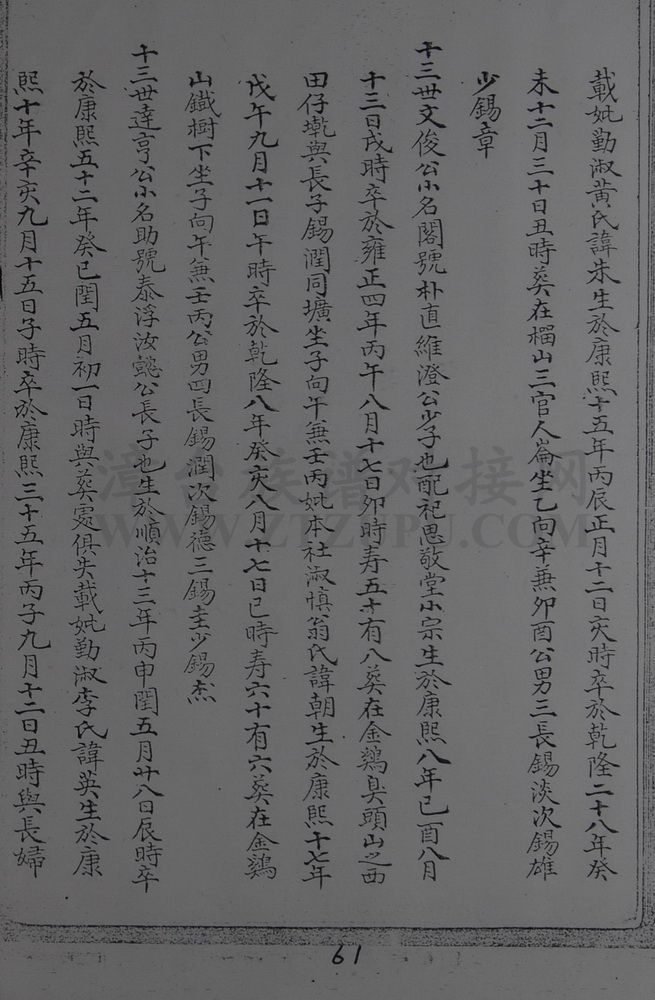 載妣勤淑黄氏諱朱生於康熙十五年丙辰正月十二日亥時卒於乾隆二十八年癸
未十二月三十日丑時葬在榴山三官人崙坐乙向辛兼卯酉公男三長錫淡次錫雄
少錫章
十三世文俊公小名閣號朴直維澄公少子也配祀思敬堂小宗生於康熙八年己酉八月
十三日戌時卒於雍正四年丙午八月十七日卯時寿五十有八葬在金鷄奐頭山之西
田仔墘與長子錫潤同壙坐子向午兼壬丙妣本社淑慎翁氏諱朝生於康熙十七年
戊午九月十一日午時卒於乾隆八年癸亥八月十七日巳時寿六十有六葬在金鷄
山鐵樹下坐子向午兼壬丙公男四長錫潤次錫德三錫圭少錫杰
十三世達亨公小名助號泰浮汝懿公長子也生於順治十三年丙申閏五月廿八日辰時卒
於康熙五十二年癸巳閏五月初一日時與葬處俱失載妣勤淑李氏諱英生於康
熙十年辛亥九月十五日子時卒於康熙三十五年丙子九月十二日丑時與長婦
漳台族谱对接网
WWW.ZTZJPU.COM
61